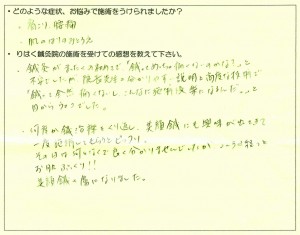 ・どのような症状、お悩みで施術をうけられましたか？
・肩こり、腰痛
・肌のはりのおとろえ
・りはく鍼灸院の施術を受けての感想を教えて下さい。
・鍼灸がまったくの初めてで、「鍼ってめっちゃ痛くないのかな？」って
不安でしたが、院長先生の分かりやすい説明と高度な技術で
「鍼って全然痛くないし、こんなに効果抜群になるんだ…」って
目からうろこでした。
・何度か鍼治療をくり返し、美顔鍼にも興味が出てきて
一度施術してもらうことに
その日は何となく良く分かりませんでしたが、
お肌ぷっくり!!
美顔鍼の虜になりました。